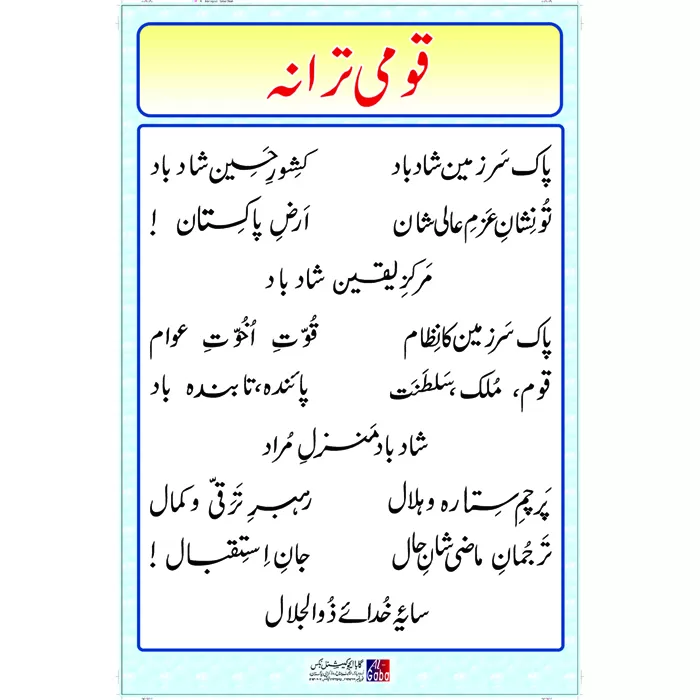 قومی ترانہ
پاک سَرزمین شاد باد کِشورِ حَسین شاد باد
تُو نِشانِ عَزمِ عالی شان اَرضِ پاکِستان !
مَرکزِ یقین شاد باد
پاک سَرزمین کا نِظام قُوّتِ اُخُوّتِ عوام
قوم، مُلک، سَلطَنَت پائندہ، تابندہ باد
شاد باد مَنزلِ مُراد
پَرچمِ سِتارہ و ہلال رہبرِ تَرَقیّ و کمال
تَرجُمانِ ماضی شانِ حال جانِ اِستِقبال !
سایۂ خُدائے ذُوالجلال
گابا ایجوکیشنل بکس
Al-Gaba